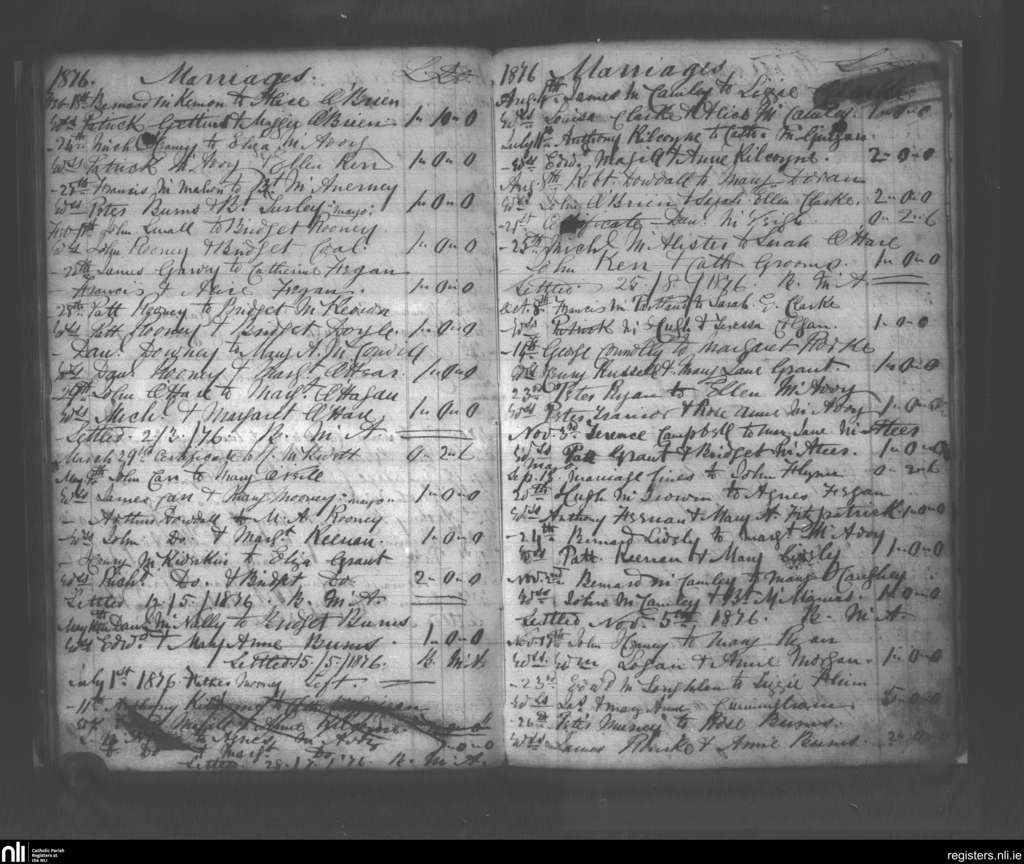 1876. Marriages. L S D
Feb 1st Bernard McKernon to Alice O'Brien
Wds Patrick & Maggie O'Brien 1-10-0
-24th Mich to Eliza McAvoy
Wds Patrick McAvoy & Ellen Kerr 1-0-0
-25th Francis McMahon to McAnerney
Wds Peter Burns & B. Turley. mayo: 1-0-0
John Small to Bridget Rooney
Wds John Rooney & Bridget Coal 1-0-0
-28th James Garvey to Catherine Fegan
- Francis & Alice Fegan. 1-0-0
28th Patt Rooney to Bridget McKeown
Wds Patt Rooney & Bridget Doyle. 1-0-0
- Danl. Downey to Mary A. Mc
Wds Danl Rooney & Margt O'Hear. 1-0-0
John O'Hare to Margt. O'Hagan
Wds Michl & Margaret O'Hare 1-0-0
Settled. 2/3/76. B. McA
March 29th Certificate to J. McKevitt 0-2-6
May John Carr to Mary O'Neill
Wds James Carr & Mary Mooney. mayo. 1-0-0
- Arthur Dowdall to M. A. Rooney
-Wds John Do. & Margt. Keenan. 1-0-0
- Henry McKibbin to Eliza Grant
Wds Richd Do. & Bridget Do 2-0-0
Settled 12/5/1876 B. McA.
May McNally to Bridget Burns
Wds Edwd. & Mary Anne Burns. 1-0-0
Settled 15/5/1876. B. McA.
July 1st 1876. Father Mooney Left.
-11th Anthony
Wds
Agnes McAvoy
& Margt 1-0-0
Settled. 28/7/76. B. McA.
1876 Marriages
Aug James McCamley to Lizzie Clarke
Wds Louisa Clarke & Alice McCamley 1-0-0
July Anthony Kilcoyne to Cath McGuigan.
-Wds Edwd. Magill & Anne Kilcoyne. 2-0-0
Aug 8th Robt. Dowdall to Mary Doran
Wds John O'Brien & Ellen Clarke. 2-0-0
-21st Certificate - Danl McVeigh 0-2-6
-25th Michl McAlister to Sarah O'Hare
- John Kerr & Cath Grooms. 1-0-0
Settled. 25/8/1876. B. McA
Oct. 8th Francis McPartland to Sarah J. Clarke
-Wds Patrick McHugh & Teressa Colgan. 1-0-0
-11th George Connolly to Margaret
Wds Henry Russell & Mary Jane Grant. 1-0-0
23rd Peter Ryan to Ellen McAvoy
Wds Peter Trainor & Rose Anne McAvoy 1-0-0
Nov. 3rd Terence Campbell to Mary Jane McAteer
Wds Patt Grant & Bridget McAteer. 1-0-0
Sep. 13. marriage lines to John Flynn 0-2-6
20th Hugh McKeown to Agnes Fegan
Wds Anthony Feenan & Mary A. Fitzpatrick 1-0-0
-24th Bernard Lidsly to Margt McAvoy
Wds Patt Keenan & Mary Lidsly 1-0-0
Nov. 2nd Bernard McCamley to Mary O'Caughey
Wds John McCamley & McManus. 1-0-0
Settled Nov. 5th 1876. B. McA.
Nov. 17th John to Mary Ryan
Wds. Logan & Anne Morgan. 1-0-0
-23rd McLoughlan to Lizzie
Wds & Mary Anne Cunningham 5-0-0
-26th Peter Murney to Rose Burns.
Wds James & Annie Burns. 2-0-0
nli Catholic Parish Registers at the NLI
registers.nli.ie